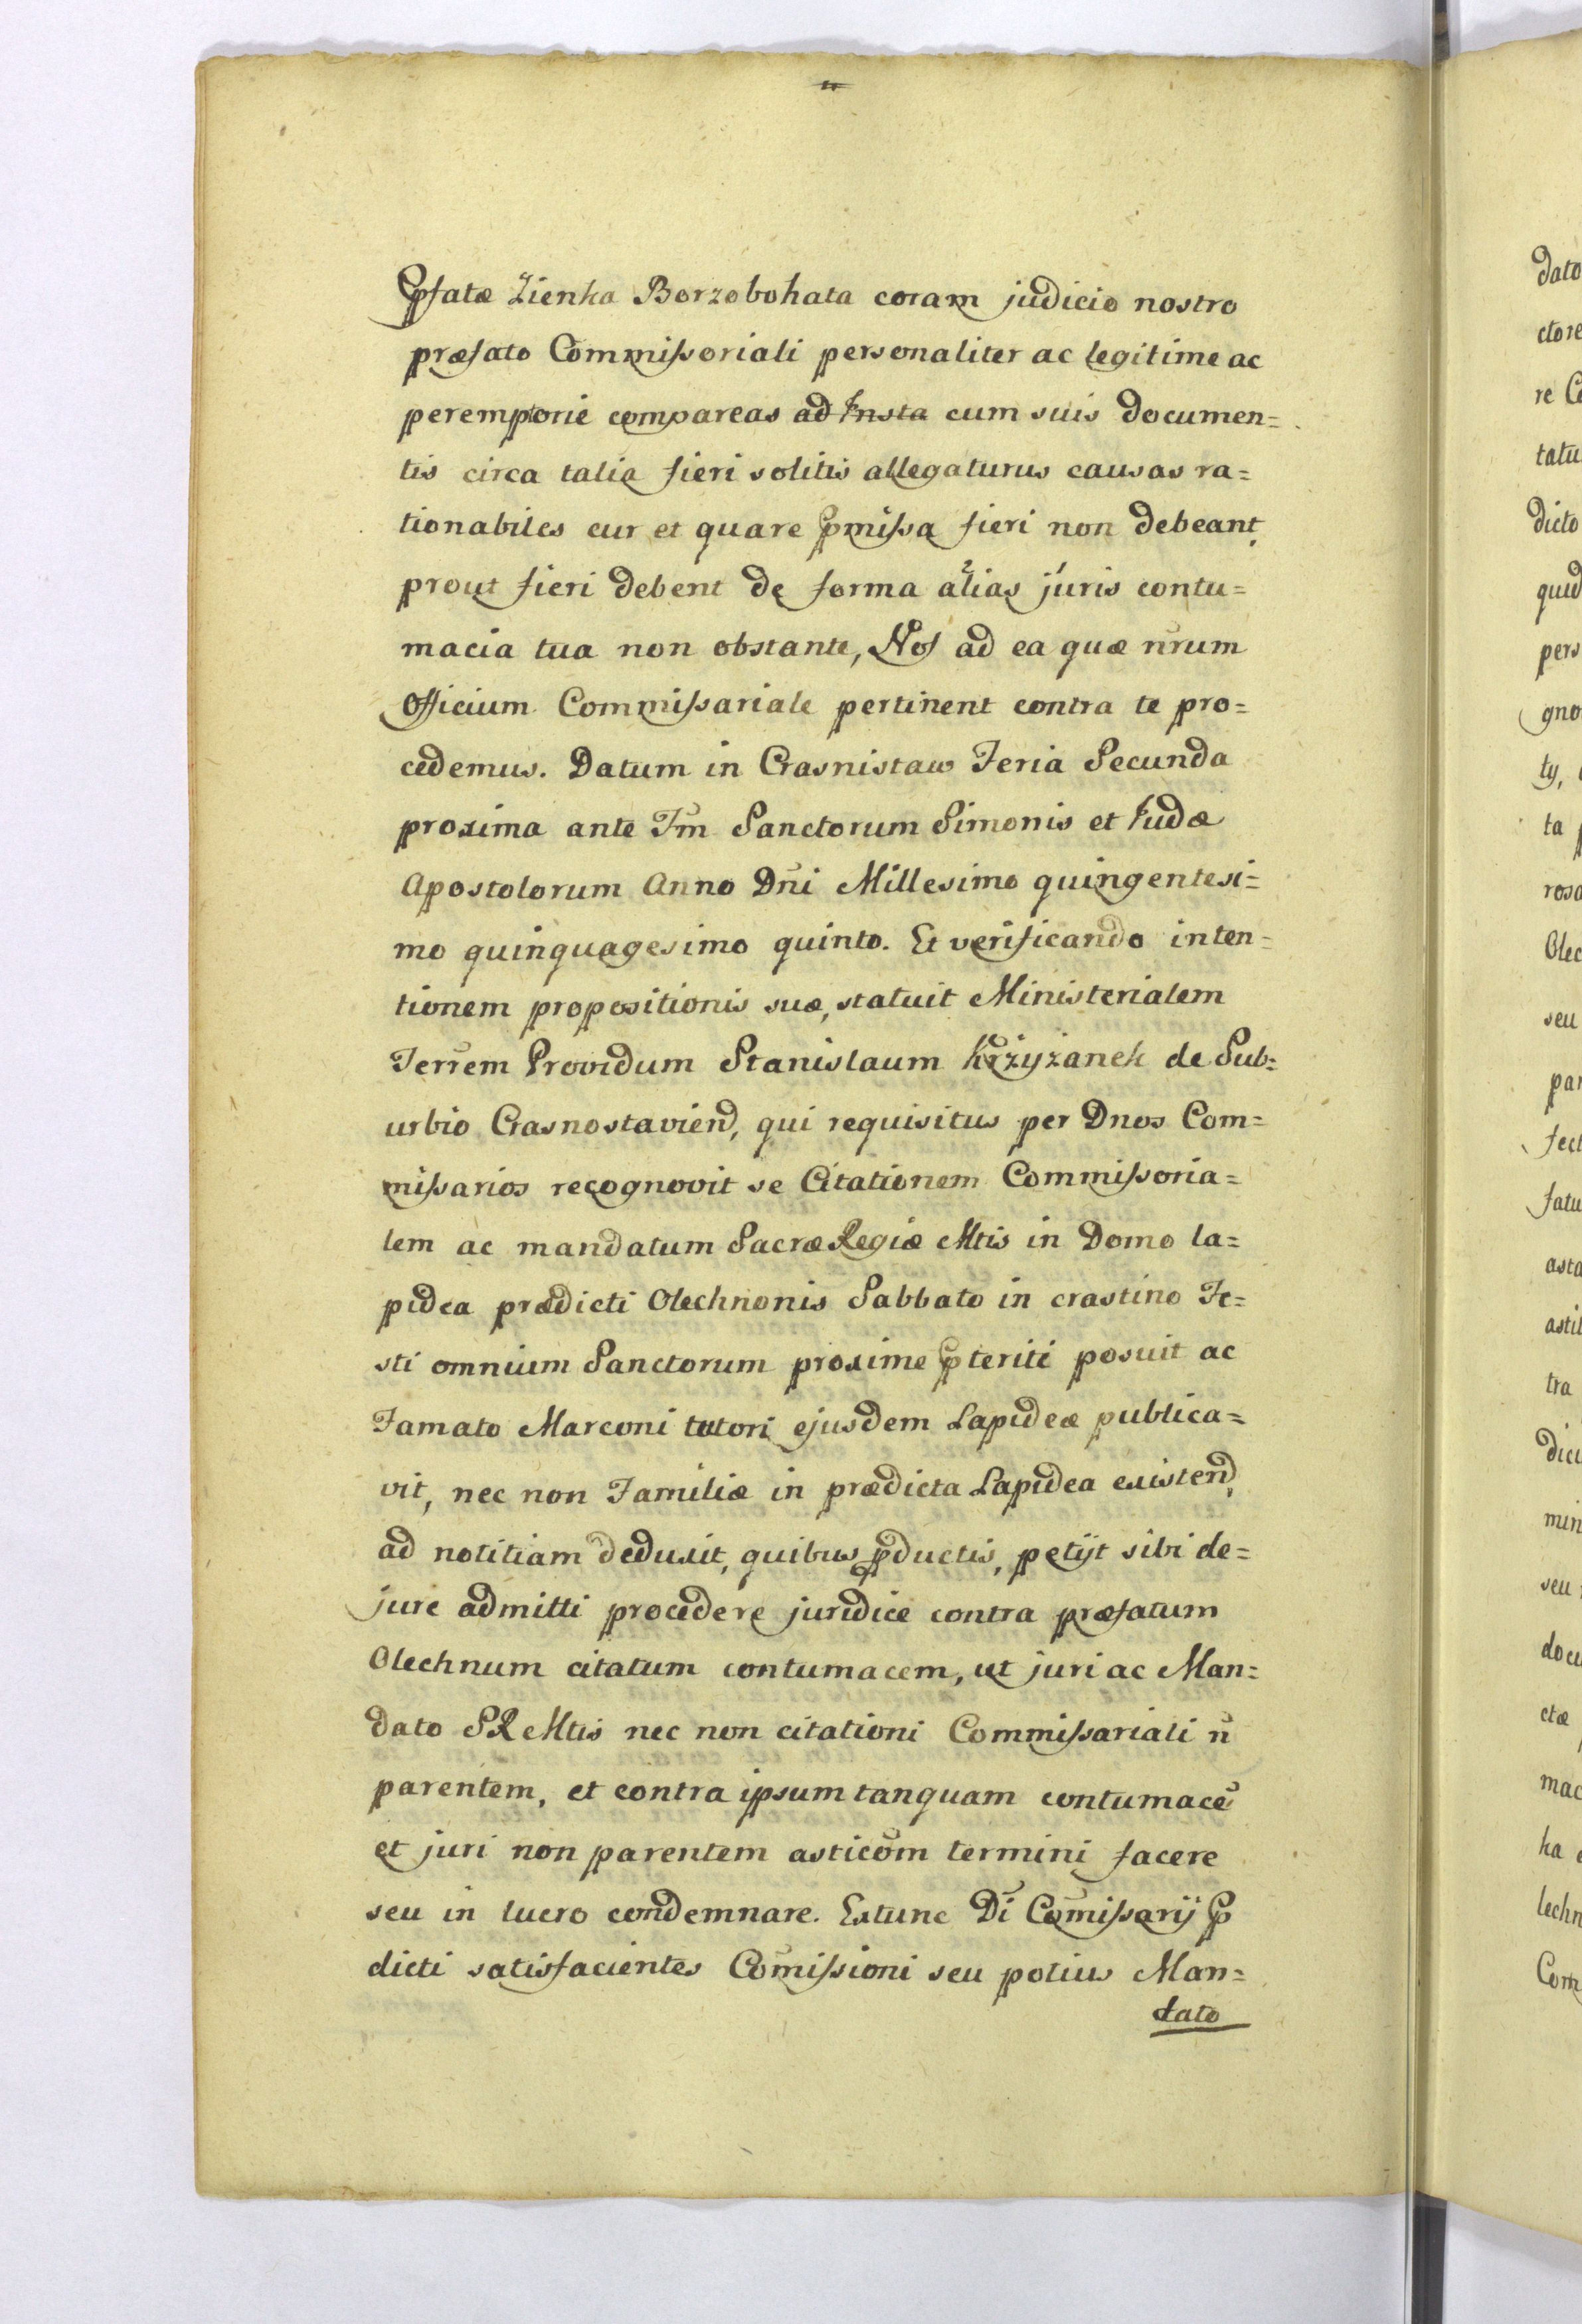 Pfatæ Zienka Borzobohata coram judicio nostro
præfato Commissoriali personaliter ac legitime ac
peremptorie compareas ad Insta cum suis documen=
tis circa talia fieri solitis allegaturus causas ra=
tionabiles cur et quare pmissa fieri non debeant,
prout fieri debent de forma alias juris contu=
macia tua non obstante, Nos ad ea quæ nrum
Officium Commissariale pertinent contra te pro=
cedemus. Datum in Crasnistaw Feria Secunda
proxima ante Fm Sanctorum Simonis et Judæ
Apostolorum Anno Dni Millesimo quingentesi=
mo quinquagesimo quinto. Et verificando inten=
tionem propositionis suæ, statuit Ministerialem
Terrem Providum Stanislaum Krzyżanek de Sub=
urbio Crasnostaviend, qui requisitus per Dnos Com=
missarios recognovit se Citationem Commissoria=
lem ac mandatum Sacræ Regiæ Mtis in Domo la=
pidea prædicti Olechnonis Sabbato in crastino Fe=
sti omnium Sanctorum proxime pteriti posuit ac
Famato Marconi tutori ejusdem Lapideæ publica=
vit, nec non Familiæ in prædicta Lapidea existend,
ad notitiam deduxit, quibus pductis, petijt sibi de=
jure admitti procedere juridice contra præfatum
Olechnum citatum contumacem, ut juri ac Man=
dato SR Mtis nec non citationi Commissariali n
parentem, et contra ipsum tanquam contumace
et juri non parentem asticom termini facere
seu in lucro condemnare. Extunc Di Comissarij p
dicti satisfacientes Comissioni seu potius Man=
dato
dato
ctore
re C
tatu
dicto
quid
pers
gno
ty,
ta
rosa
Olec
seu
par
fect
fatu
asta
astit
tra
dici
min
seu
docu
ctæ
mac
ka
lechn
Com